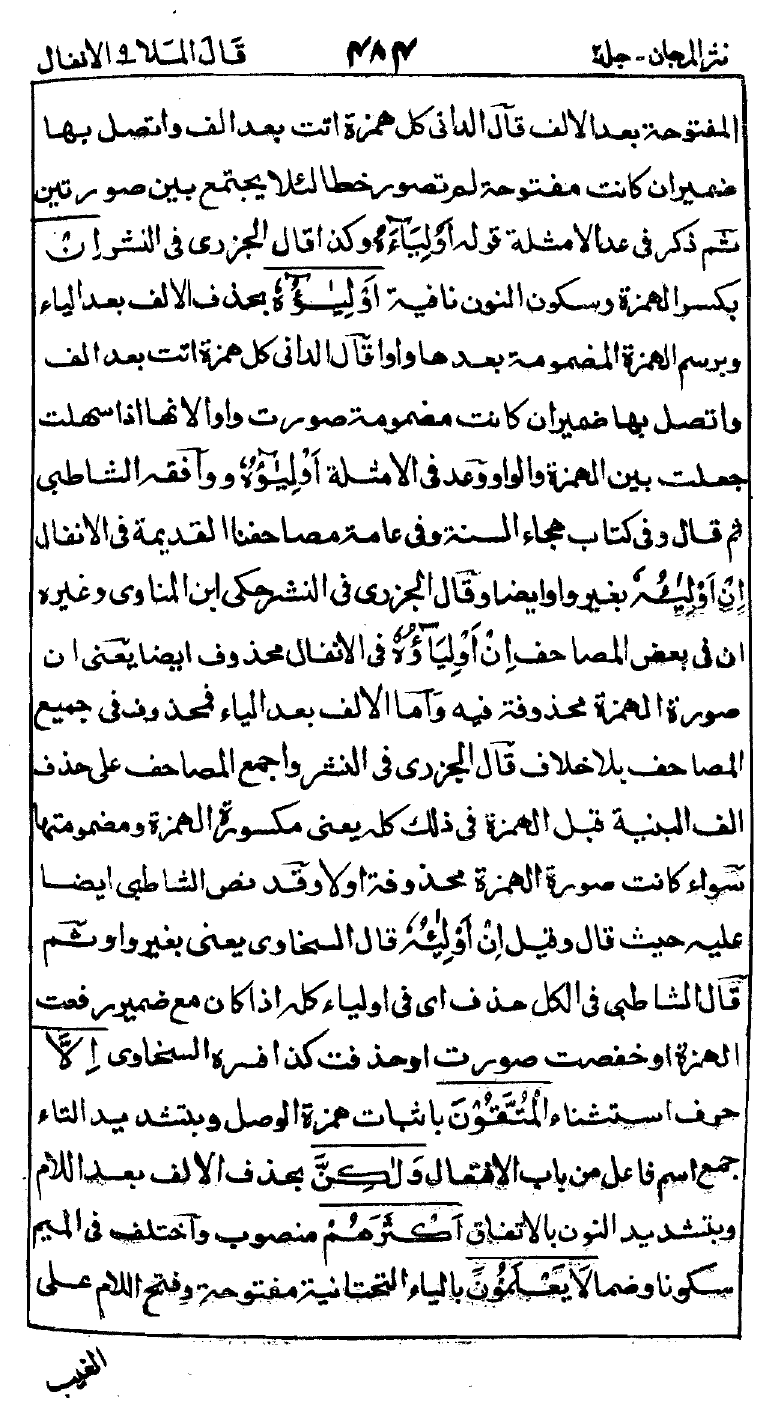 نثر المرجان - جلد٢ ٤٨٤ قَالَ المَلا ٩ الانفال
المفتوحة بعد الالف قالَ الدانى كل همزة اتت بعد الف واتصل بها
ضمير ان كانت مفتوحة لم تصور خطا لئلا يجتمع بين صورتين
ثم ذكر فى عد الامثلة قوله اَوْلِيَآءَهٗ وكذا قال الجزرى فى النشر اِنْ
بكسر الهمزة وسكون النون نافية اَوْلِيٰٓؤُهٗ بحذف الالف بعد الياء
وبرسم الهمزة المضمومة بعدها واوا قالَ الدانى كل همزة اتت بعد الف
واتصل بها ضمير ان كانت مضمومة صورت واوا لانها اذا سهلت
جعلت بين الهمزة والواو وعد فى الامثلة اَوْلِيٰٓؤُهٗ ووافقه الشاطبى
ثم قال وفى كتاب هجاء السنة وفى عامة مصاحفنا القديمة فى الانفال
اِنْ اَوْلِيٰٓـُٔهٗ بغير واو ايضا وقال الجزرى فى النشر حكى ابن المناوى وغيره
ان فى بعض المصاحف اِنْ اَوْلِيَآؤُهٗ فى الانفال محذوف ايضا يعنى ان
صورة الهمزة محذوفة فيه وَاَما الالف بعد الياء فمحذوف فى جميع
المصاحف بلا خلاف قالَ الجزرى فى النشر واجمع المصاحف على حذف
الف البنية قبل الهمزة فى ذلك كله يعنى مكسورة الهمزة ومضمومتها
سَواء كانت صورة الهمزة محذوفة اولا وقد نص الشاطبى ايضا
عليه حيث قال وقيل اِنْ اَوْلِيٰٓـُٔهٗ قال السخاوى يعنى بغير واو وثم
قَال الشاطبى فى الكل حذف اى فى اولياء كله اذا كان مع ضمير رفعت
الهمزة او خفضت صورت او حذفت كذا فسره السخاوى اِلَّا
حرف استثناء الْمُتَّقُوْنَ باثبات همزة الوصل وبتشديد التاء
جمع اسم فاعل من باب الافتعال وَلٰكِنَّ بحذف الالف بعد اللام
وبتشديد النون بالاتفاق اَكْثَرَهُمْ منصوب وَاختلف فى الميم
سكونا وضما لَا يَعْلَمُوْنَ بالياء التحتانية مفتوحة وفتح اللام على
الغيب